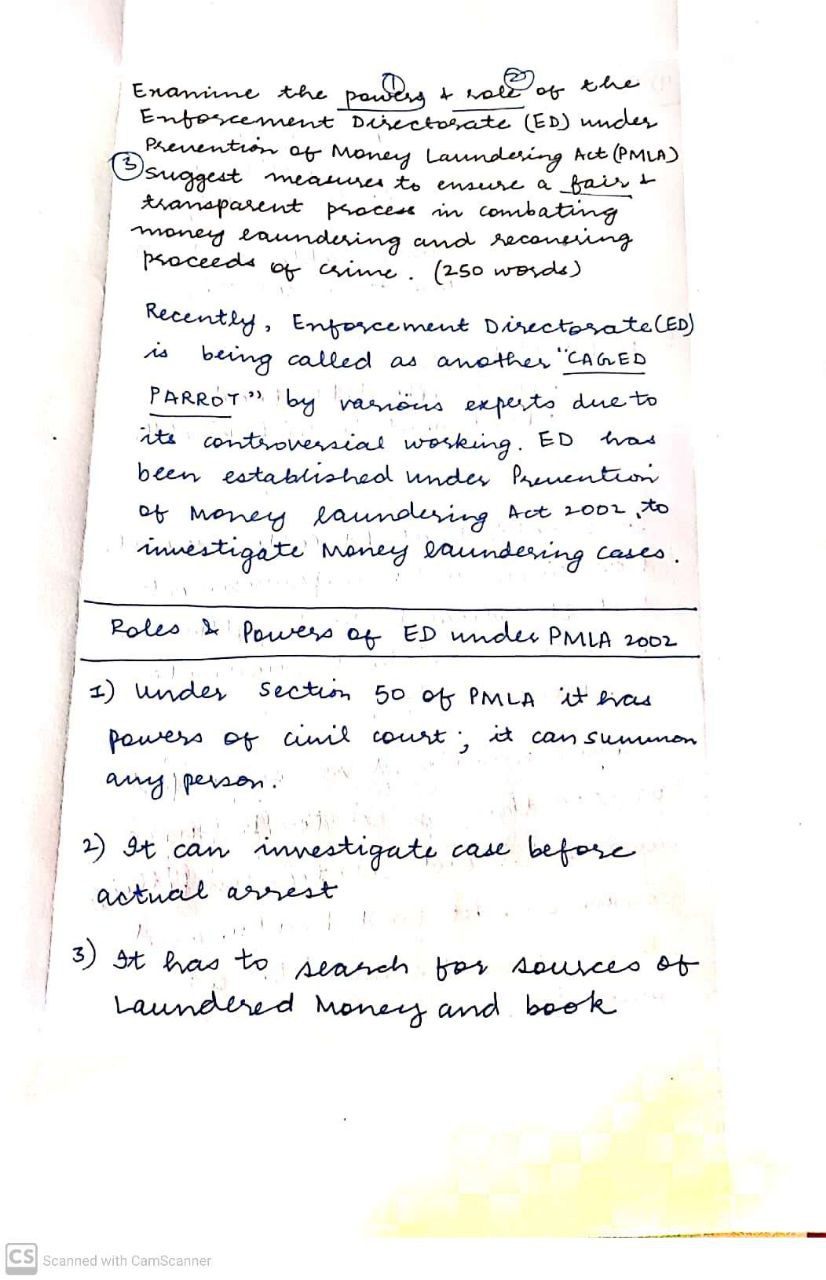 ① ②
Examine the powers & role of the
Enforcement Directorate (ED) under
Prevention of Money Laundering Act (PMLA)
③ Suggest measures to ensure a fair &
transparent process in combating
money laundering and recovering
proceeds of crime. (250 words)
Recently, Enforcement Directorate (ED)
is being called as another "CAGED
PARROT" by various experts due to
its controversial working. ED has
been established under Prevention
of Money laundering Act 2002, to
investigate Money laundering cases.
Roles & Powers of ED under PMLA 2002
1) Under Section 50 of PMLA it has
powers of civil court; it can summon
any person.
2) It can investigate case before
actual arrest
3) It has to search for sources of
Laundered Money and book
CS Scanned with CamScanner